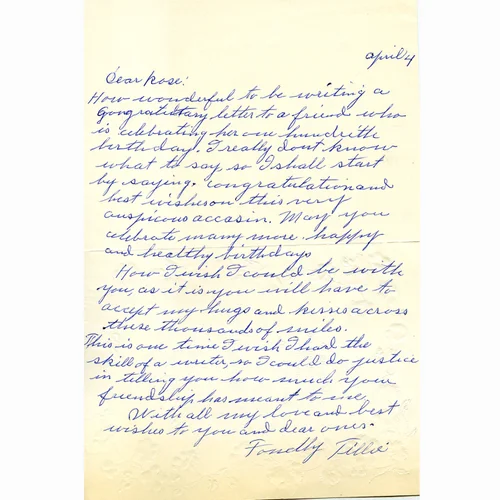 April 4
Dear Rose:
How wonderful to be writing a
Gongratultary letter to a friend who
is celebrating her one hundrithe
birthday. I really dont know
what to say, so I shall start
by saying. Congratulation and
best wishes on this very
auspicous accasin. May you
celebrate many more happy
and healthy birthdays
How I wish I could be with
you, as it is you will have to
accept my hugs and kisses across
these thousands of miles.
This is one time I wish I had the
skill of a writer, so I could do justice
in telling you how much your
friendship has meant to me,
With all my love and best
wishes to you and dear ones.
Fondly Tillie